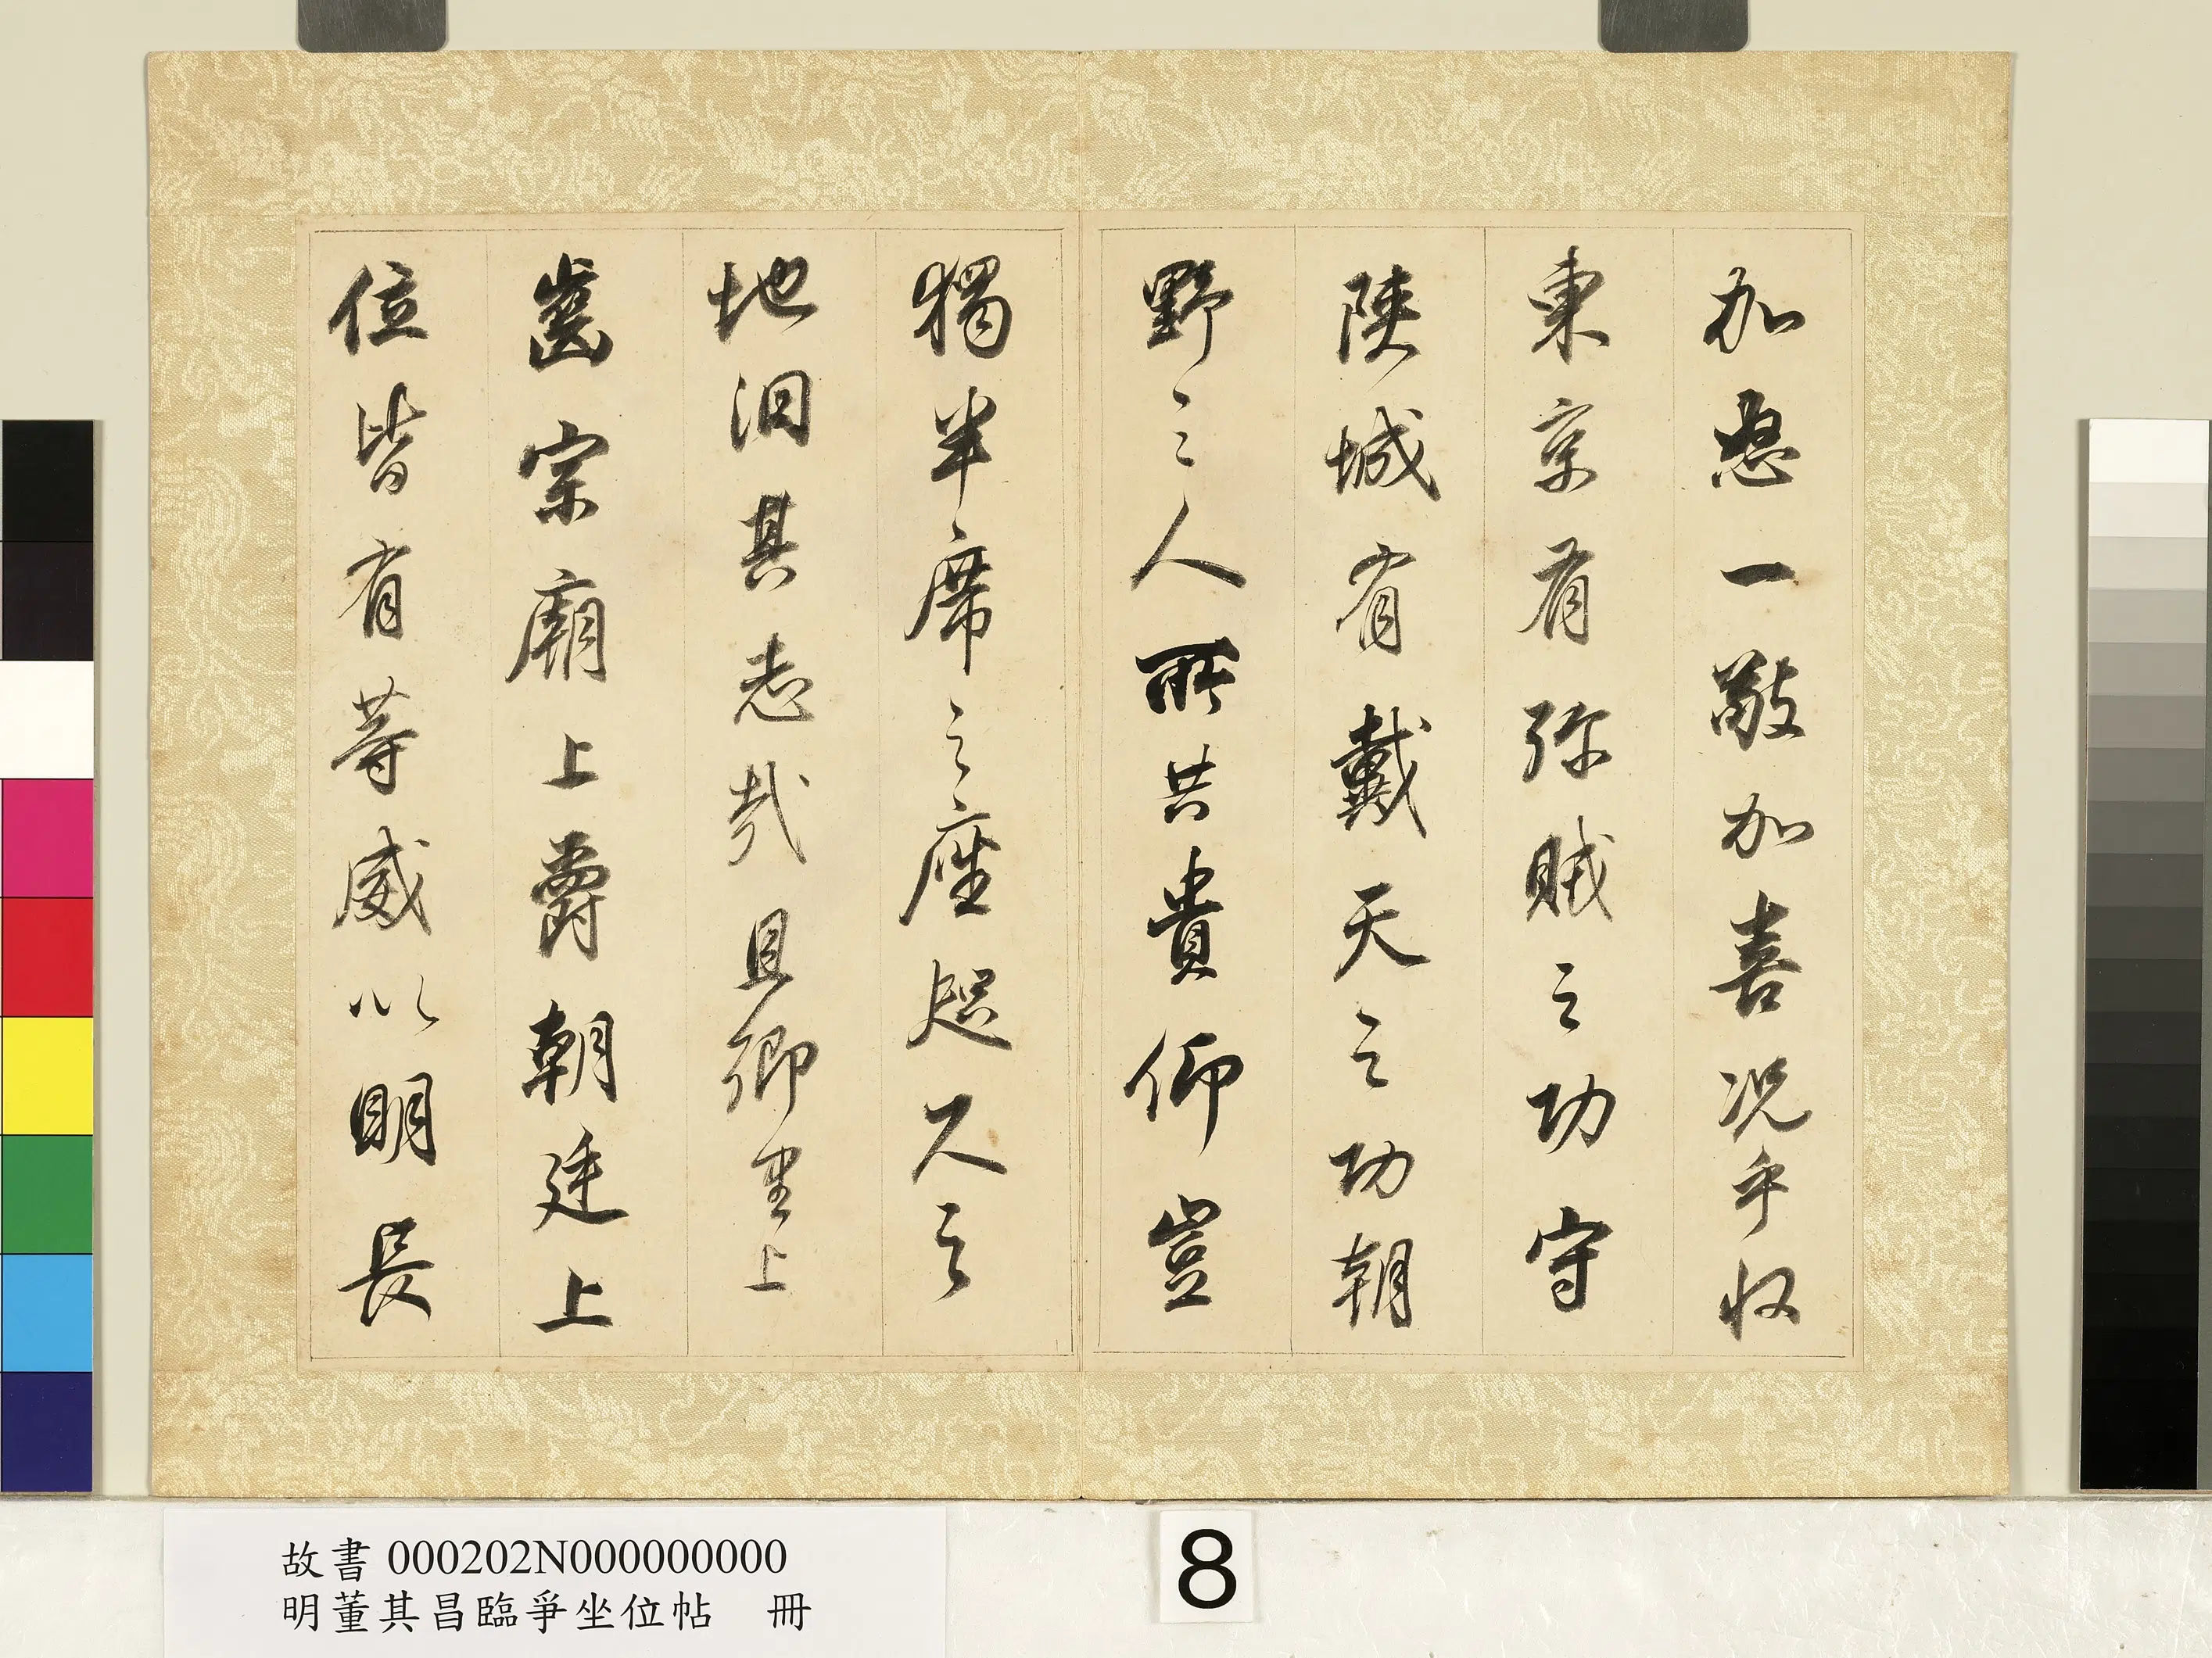 加怒一敬加喜况乎收
東京有殄賊之功守
陝城有戴天之功朝
野之人所共貴仰豈
獨半席之座咫尺之
地汩其志哉且鄉里上
齒宗廟上爵朝廷上
位皆有等威以明長
故書 000202N000000000
明董其昌臨爭坐位帖 冊
8